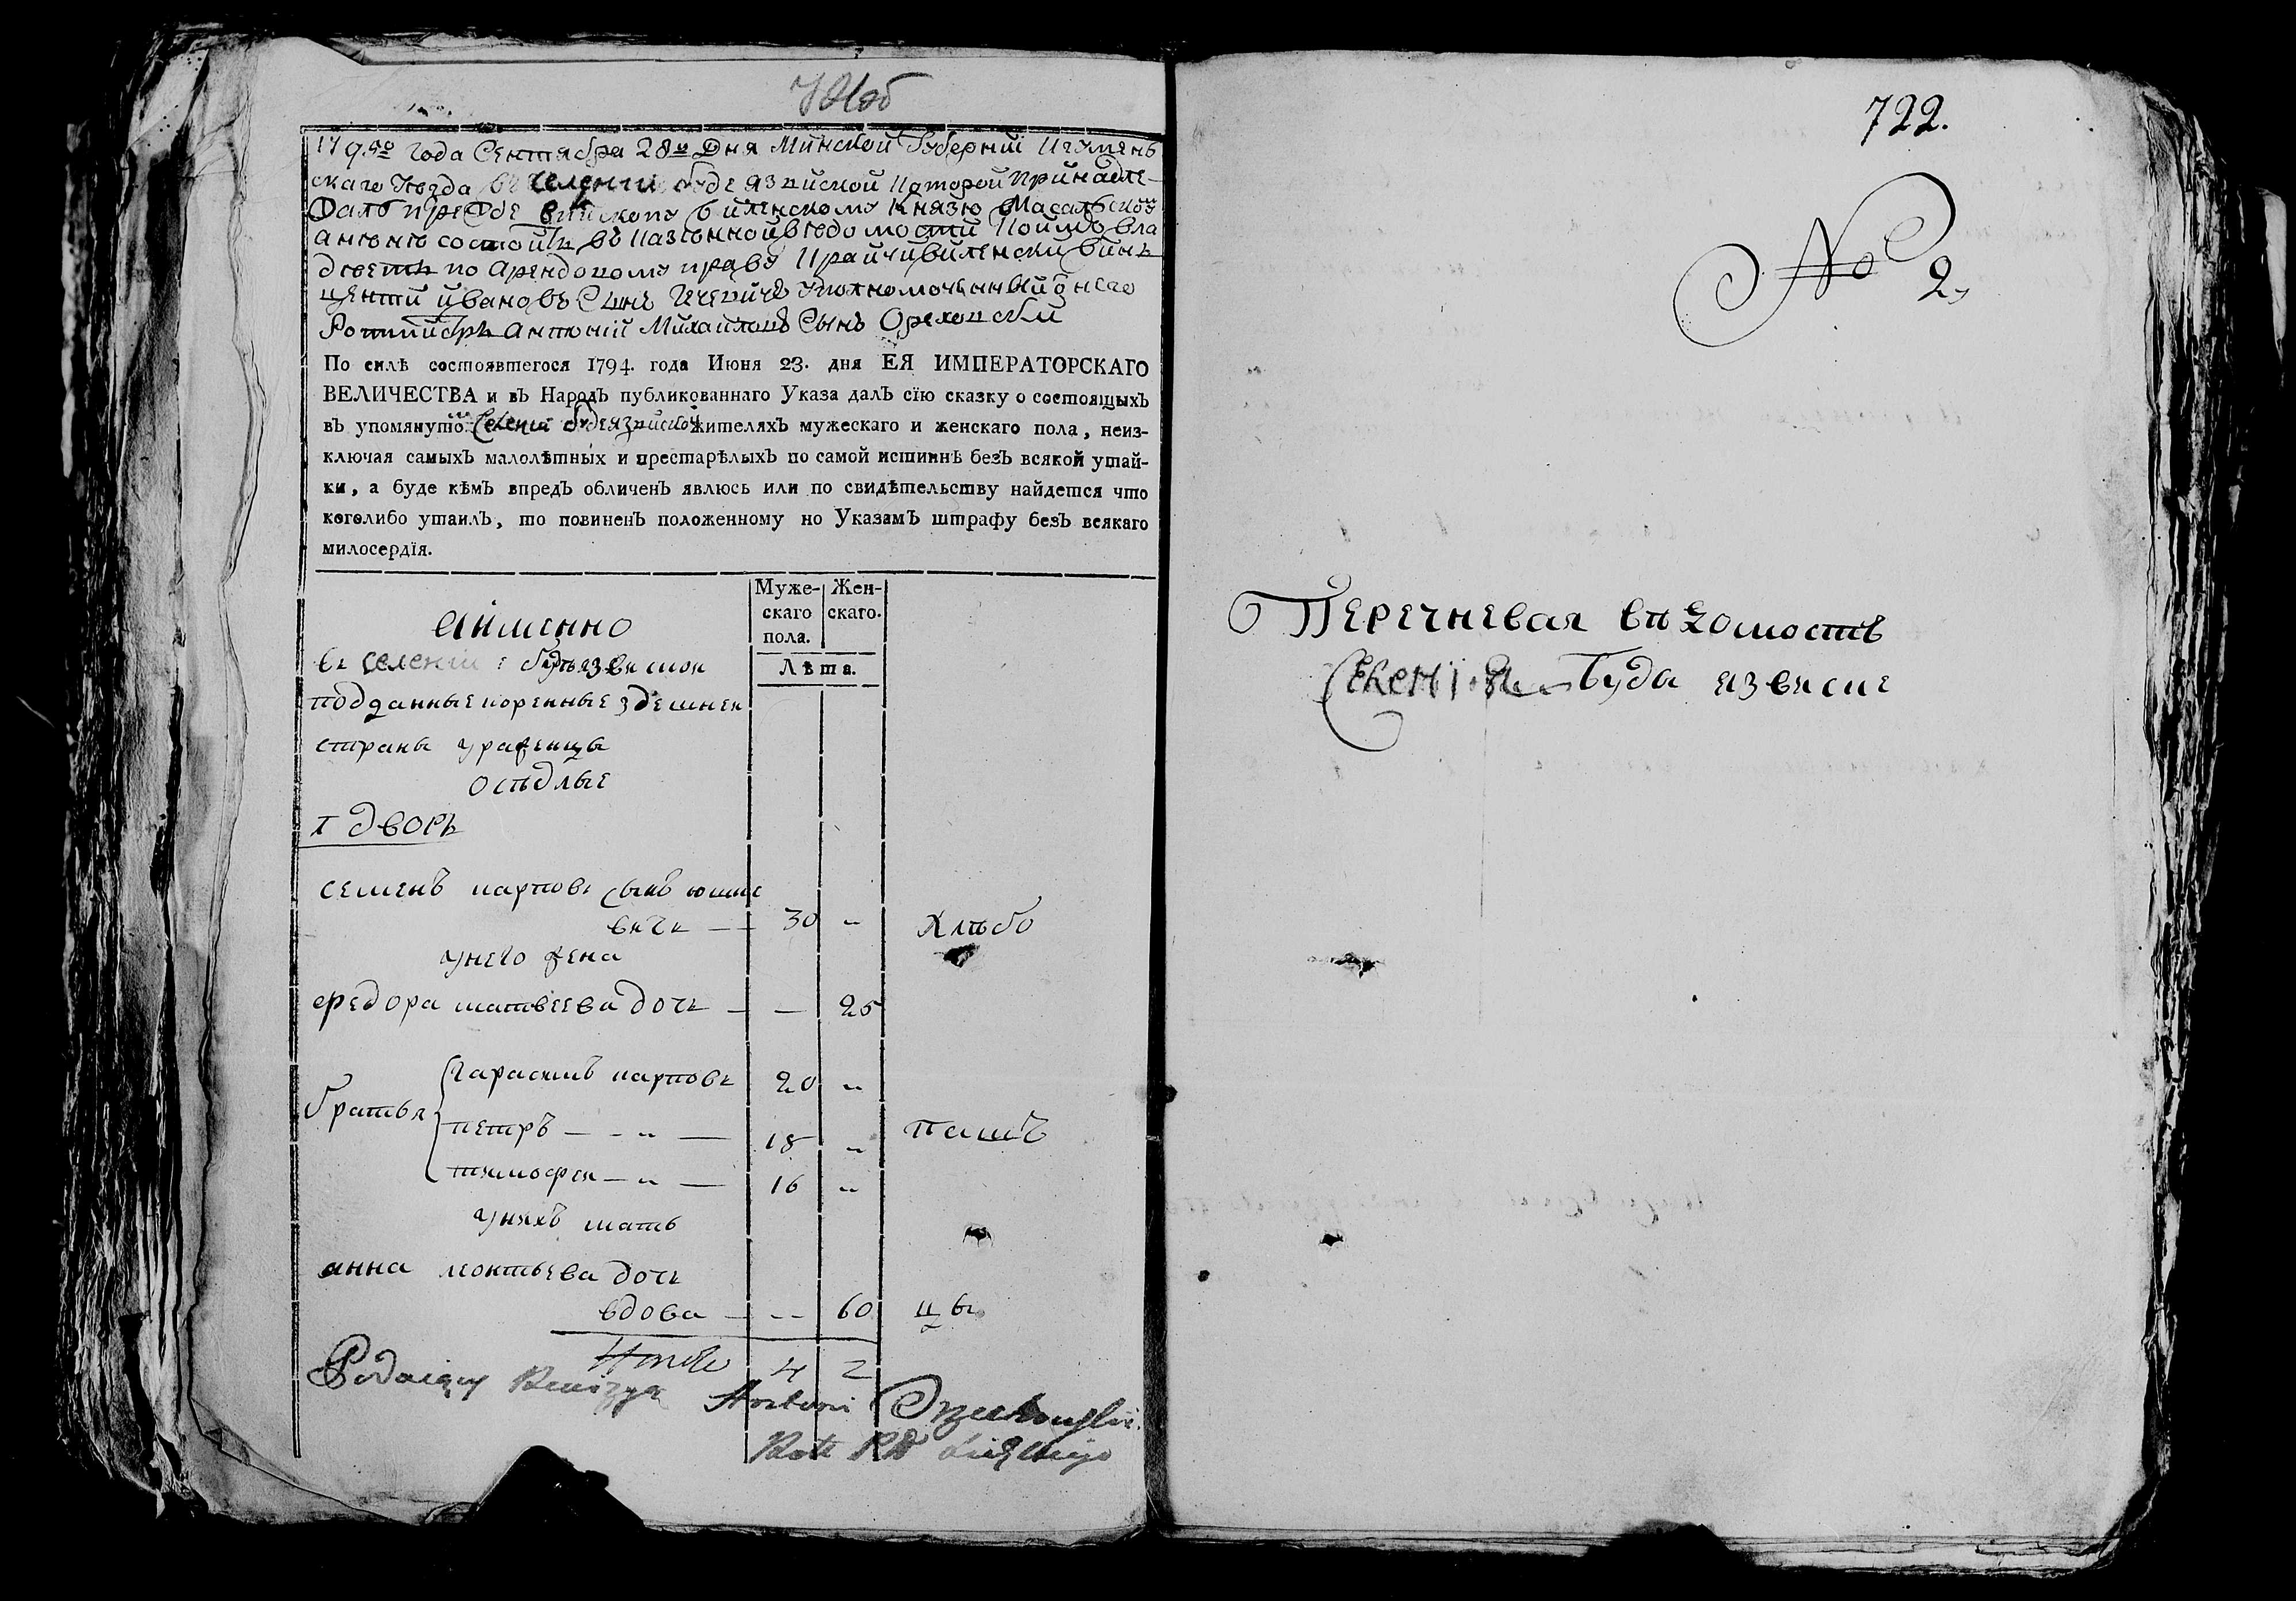 1795го года Сентября 28го Дня Минской Губерніи Игумен
скаго Повзда въ селеніи буде язвиской которой принадле
жалъ прежде Бископу виленскому Князю Масальскому
а ныне состоитъ въ казенной ведомости коимъ вла
дѣетъ по арендовному праву крайчи виленски вин
центи ивановъ Сынъ уполномоченный отъ него
Ротмистръ Антоній Михайловъ Сынъ Ореховски
По силѣ состоявшегося 1794. года Июня 23. дня ЕЯ ИМПЕРАТОРСКАГО
ВЕЛИЧЕСТВА и въ Народъ публикованнаго Указа далъ сїю сказку о состоящыхъ
въ упомянуто селеніи буде язвиской жителяхъ мужескаго и женскаго пола, неиз-
ключая самыхъ малолѣтныхъ и престарѣлыхъ по самой истиннѣ безъ всякой утай-
ки, а буде кѣмъ впредъ обличенъ явлюсь или по свидѣтельству найдется что
коголибо утаилъ, то повиненъ положенному по Указамъ штрафу безъ всякаго
милосердїя.
Муже- Жен-
скаго скаго.
пола.
Лѣта.
а именно
въ селеніи буде язвиской
подданные коренные здешнеи
страны уроженцы
оседлые
1 дворъ
семенъ карповъ сынъ юшке
вичъ — 30 „ Хлѣбо
у него жена
федора матвеева дочь — — 25
братья
гарасимъ карповъ 20 „
петръ — „ — 18 „ пашъ
тимофеи — „ — 16 „
у нихъ мать
анна леонтьева дочь
вдова — — 60 цы
Итого 4 2
Podaiący Rewizyą Antoni Orzechowski
722.
№ 2
Перечневая вѣдомость
Селенія Буда язвиске